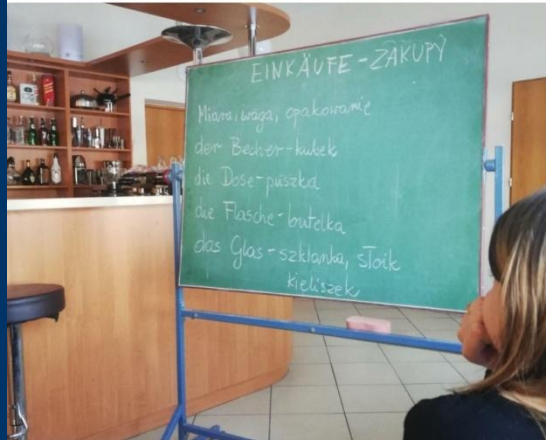 EINKÄUFE - ZAKUPY
Miara, waga, opakowanie
der Becher - kubek
die Dose - puszka
die Flasche - butelka
das Glas - szklanka, słoik
kieliszek